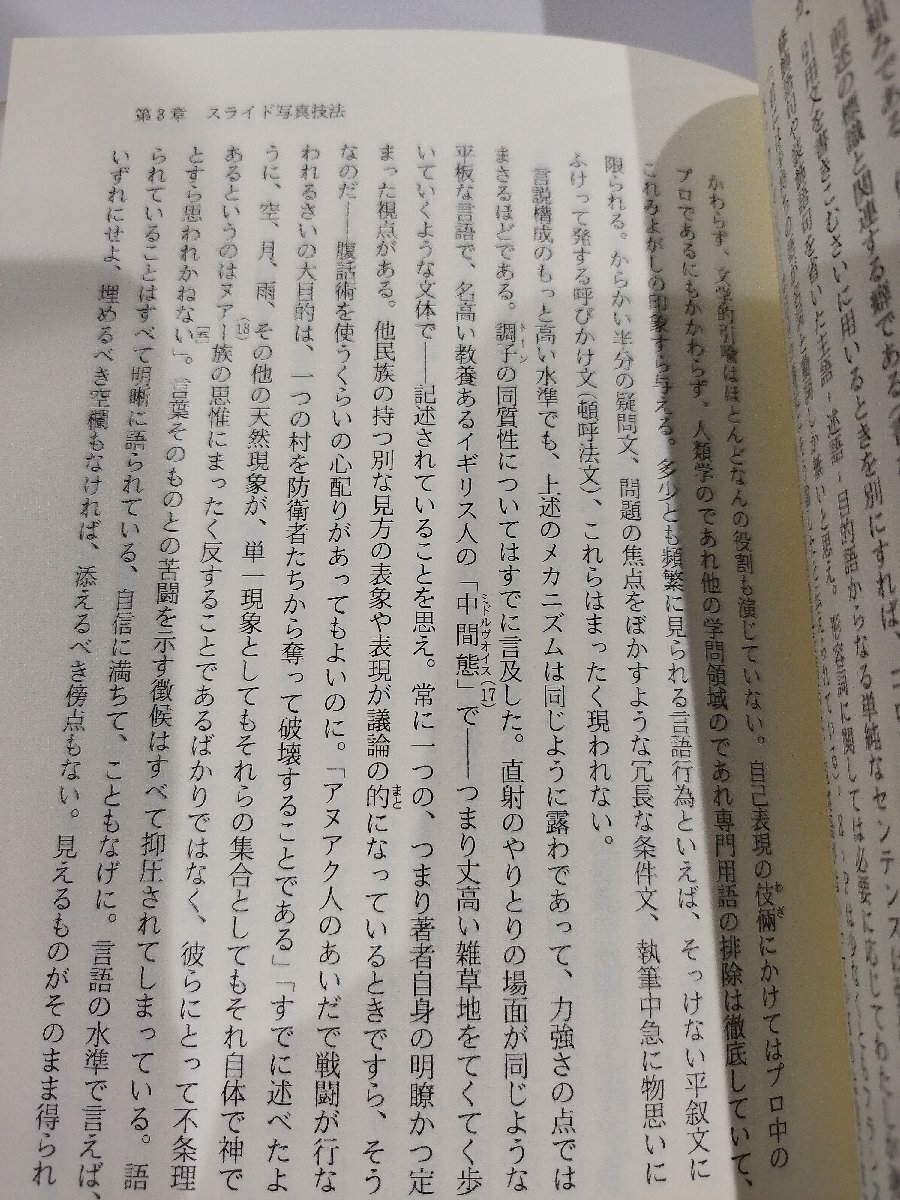 第3章　スライド写真技法
かわらず、文学的引喩はほとんどなんの役割も演じていない。自己表現の伎倆にかけてはプロ中の
プロであるにもかかわらず、人類学のであれ他の学問領域のであれ専門用語の排除は徹底していて、
これみよがしの印象すら与える。多少とも頻繁に見られる言語行為といえば、そっけない平叙文に
限られる。からかい半分の疑問文、問題の焦点をぼかすような冗長な条件文、執筆中急に物思いに
ふけって発する呼びかけ文(頓呼法文)、これらはまったく現われない。
言説構成のもっと高い水準でも、上述のメカニズムは同じように露わであって、力強さの点では
まさるほどである。調子の同質性についてはすでに言及した。直射のやりとりの場面が同じような
平板な言語で、名高い教養あるイギリス人の「中間態」(17)で――つまり丈高い雑草地をてくてく歩
いていくような文体で――記述されていることを思え。常に一つの、つまり著者自身の明瞭かつ定
まった視点がある。他民族の持つ別な見方の表象や表現が議論の的になっているときですら、そう
なのだ――腹話術を使うくらいの心配りがあってもよいのに。「アヌアク人のあいだで戦闘が行な
われるさいの大目的は、一つの村を防衛者たちから奪って破壊することである」「すでに述べたよ
うに、空、月、雨、その他の天然現象が、単一現象としてもそれらの集合としてもそれ自体で神で
あるというのはヌアー族の思惟にまったく反することであるばかりではなく、彼らにとって不条理
とすら思われかねない」。言葉そのものとの苦闘を示す徴候はすべて抑圧されてしまっている。語
られていることはすべて明晰に語られている、自信に満ちて、こともなげに。言語の水準で言えば、
いずれにせよ、埋めるべき空欄もなければ、添えるべき傍点もない。見えるものがそのまま得られ